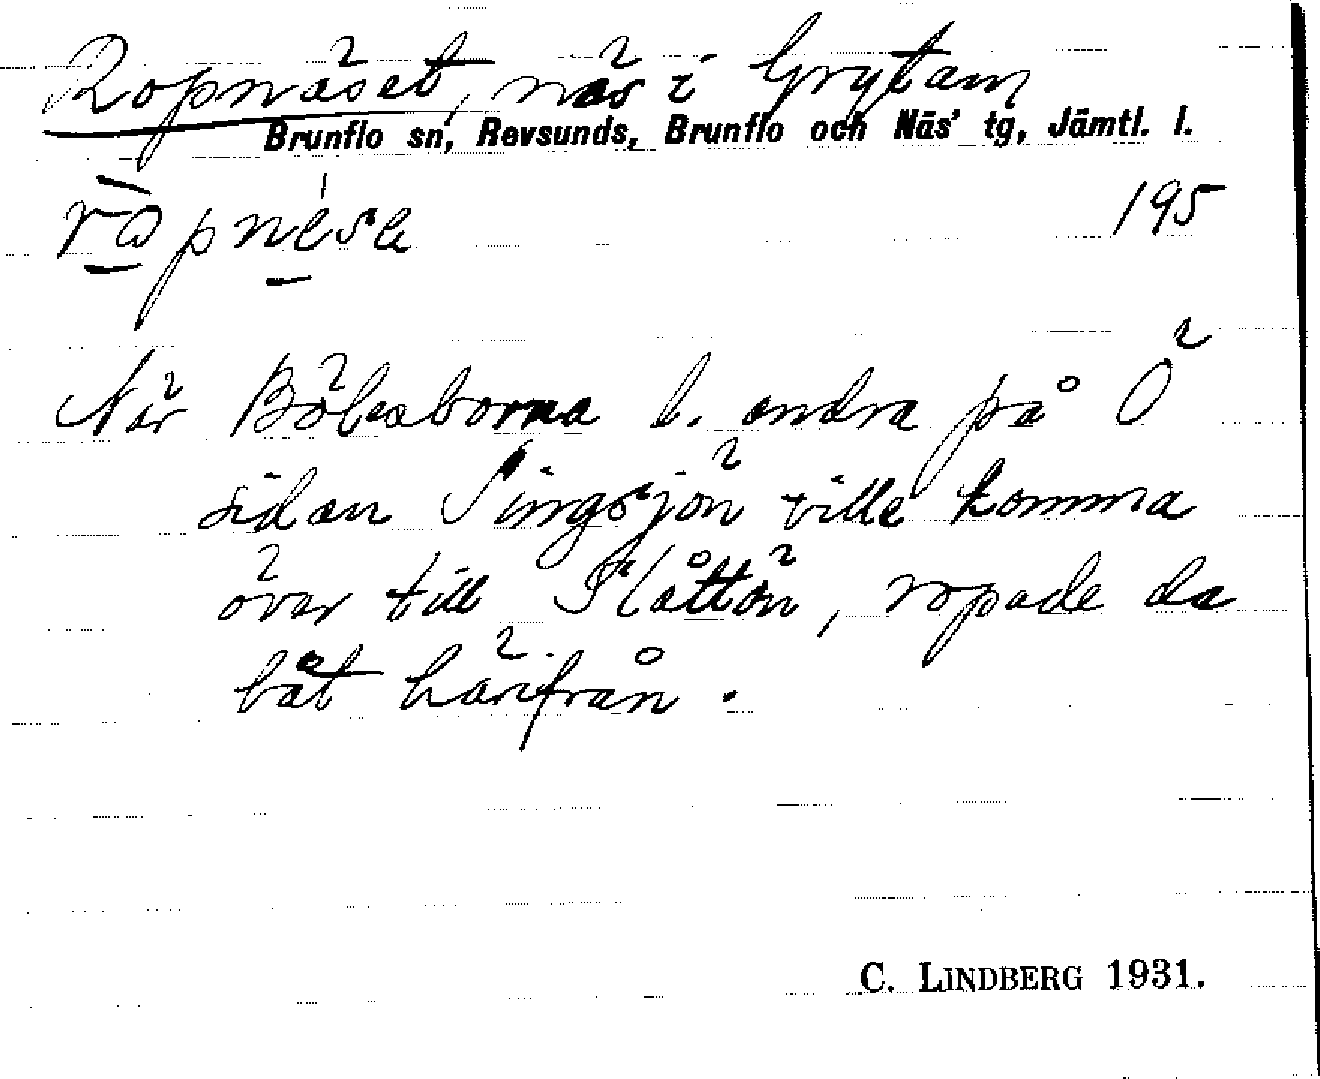 Ropnäset, näs i Grytan
Brunflo sn, Revsunds, Brunflo och Näs' tg, Jämtl. l.
195
När Bölesborna l. andra på Ö
sidan Singsjön ville komma
över till Slåttön, ropade de
båt härifrån.
C. LINDBERG 1931.